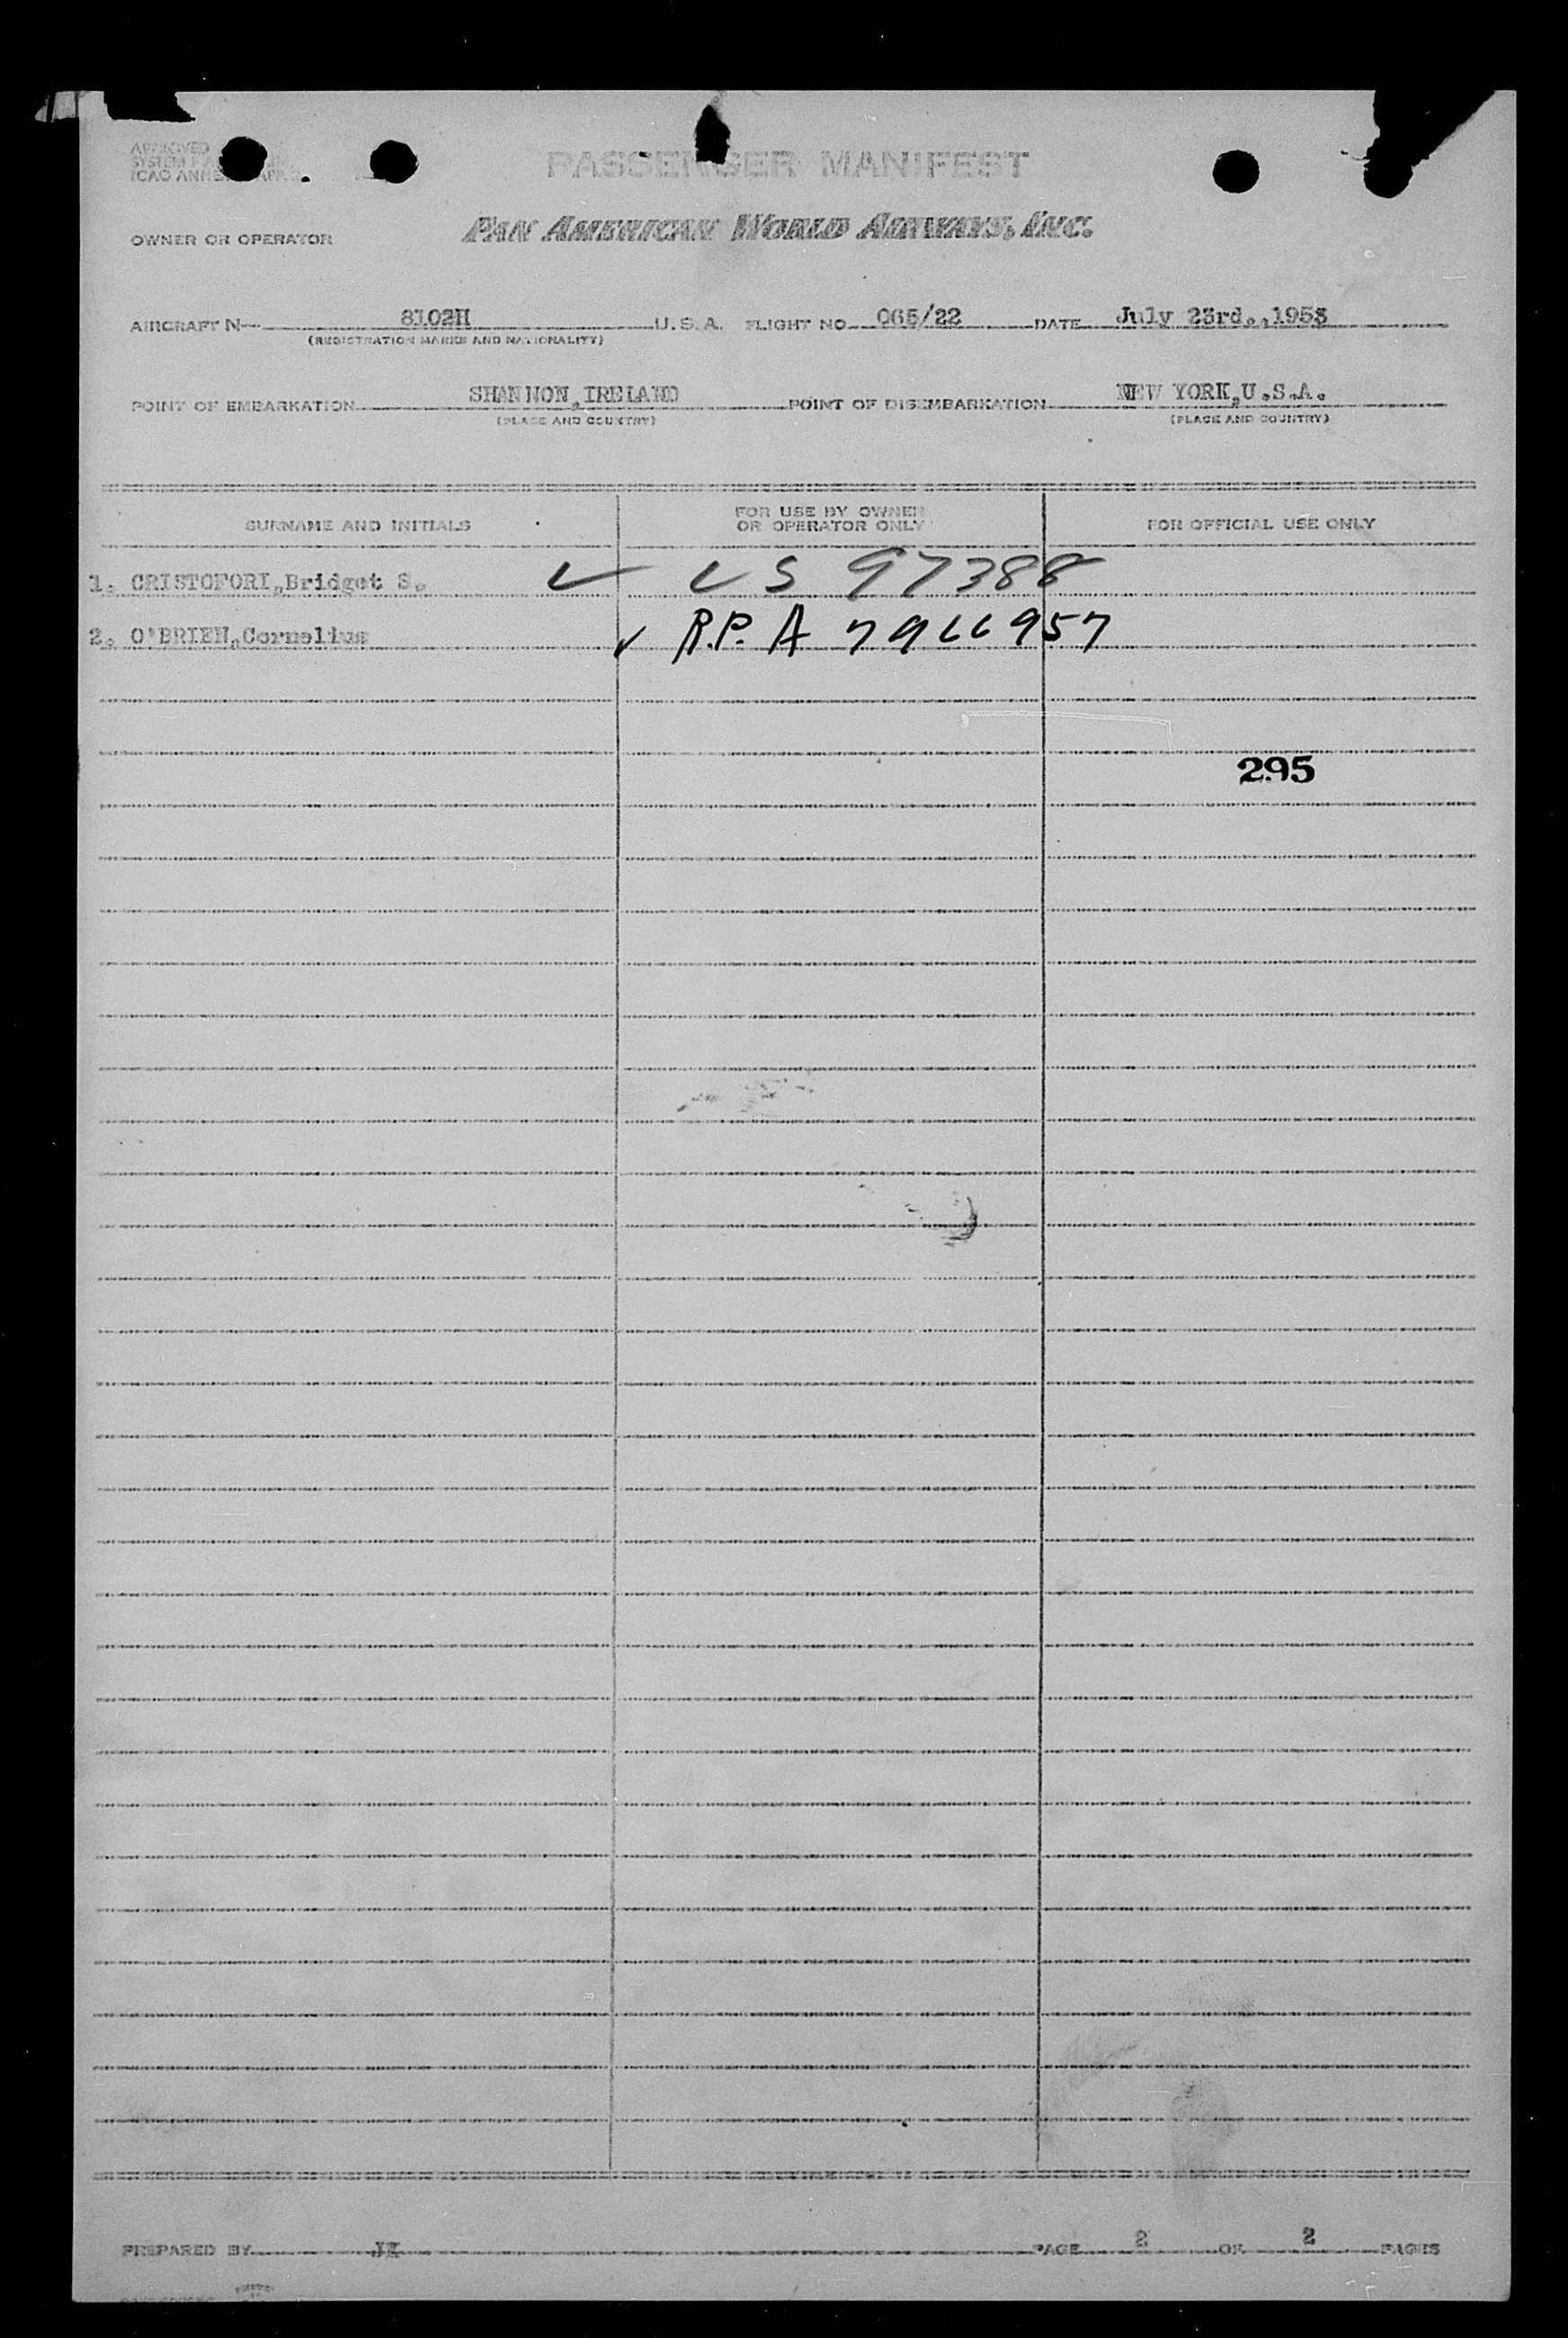 APPROVED
SYSTEM
ICAO ANNE APP.
PASSENGER MANIFEST
OWNER OR OPERATOR PAN AMERICAN WORLD AIRWAYS, INC.
AIRCRAFT N- 8102H U. S. A. FLIGHT NO. 065/22 DATE July 23rd.,1953
(REGISTRATION MARKS AND NATIONALITY)
POINT OF EMBARKATION SHANNON,IRELAND POINT OF DISEMBARKATION NEW YORK,U.S.A.
(PLACE AND COUNTRY) (PLACE AND COUNTRY)
SURNAME AND INITIALS FOR USE BY OWNER OR OPERATOR ONLY FOR OFFICIAL USE ONLY
1. CRISTOFORI,Bridget S. ✓ US 97388
2. O'BRIEN,Cornelius ✓ R.P. A 7966957
295
PREPARED BY PAGE 2 OF 2 PAGES